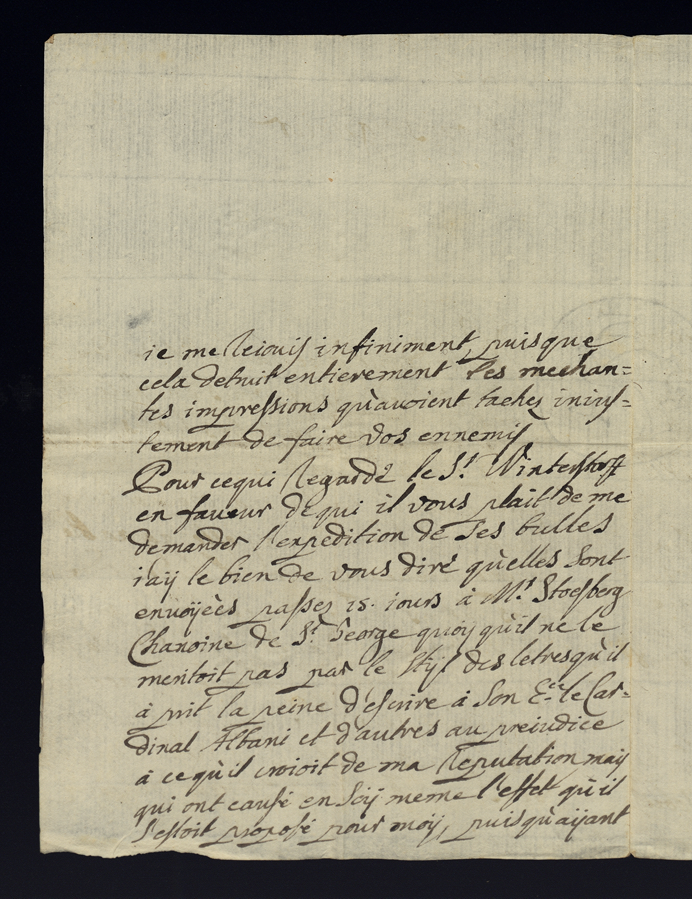 ie me reiouis infiniment, puisque
cela detruit entierement les mechan=
tes impressions qu'avoient tachez inius=
tement de faire vos ennemis
Pour cequi Regarde le Sr. Winterstorff
en faveur de qui il vous plait de me
demander l'expedition de ses bulles
i'aÿ le bien de vous dire qu'elles sont
envoÿèes passez 15. iours à Mr. Stoesberg
Chanoine de St. George quoÿ qu'il ne le
meritoit pas par le Styl des letres qu'il
à prit la peine d'escrire à Son Ece. le Car=
dinal Albani et d'autres au preiudice
à ce qu'il croioit de ma Reputation mais
qui ont causé en Soÿ meme l'effet qu'il
s'estoit proposé pour moÿ, puisqu'aÿant